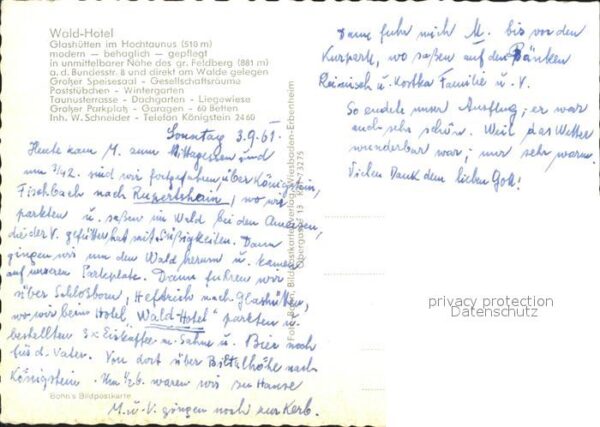 Wald-Hotel
Glashütten im Hochtaunus (518 m)
modern — behaglich — gepflegt
in unmittelbarer Nähe des gr. Feldberg (881 m)
a. d. Bundesstr. 8 und direkt am Walde gelegen
Großer Speisesaal - Gesellschaftsräume
Poststübchen - Wintergarten
Taunusterrasse - Dachgarten - Liegewiese
Großer Parkplatz - Garagen - 60 Betten
Inh. W. Schneider - Telefon Königstein 2460
Sonntag 3.9.61.
Heute kam M. zum Mittagessen und
um 1/42. sind wir fortgefahren, über Königstein,
Fischbach nach Ruppertshain, wo wir
parkten u. saßen im Wald bei den Ameisen,
die der V. gefüttert hat mit Süßigkeiten. Dann
gingen wir um den Wald herum u. kamen
auf unseren Parkplatz. Dann fuhren wir
über Schloßborn, Heftrich nach Glashütten,
wo wir beim Hotel "Wald-Hotel" parkten u.
bestellten 3x Eiskaffee m. Sahne u. Bier noch
für d. Vater. Von dort über Billtalhöhe nach
Königstein. Um 1/2 6. waren wir zu Hause
M. u. V. gingen noch zur Kerb.
Bohn's Bildpostkarte
Bildpostkartenverlag, Wiesbaden-Erbenheim
Obergasse 13
Dann fuhr mich M. bis vor den
Kurpark, wo saßen auf den Bänken
Reinisch u. Kostka Familie u. V.
So endete unser Ausflug; er war
auch sehr schön. Weil das Wetter
wunderbar war; nur sehr warm.
Vielen Dank dem lieben Gott!
privacy protection
Datenschutz